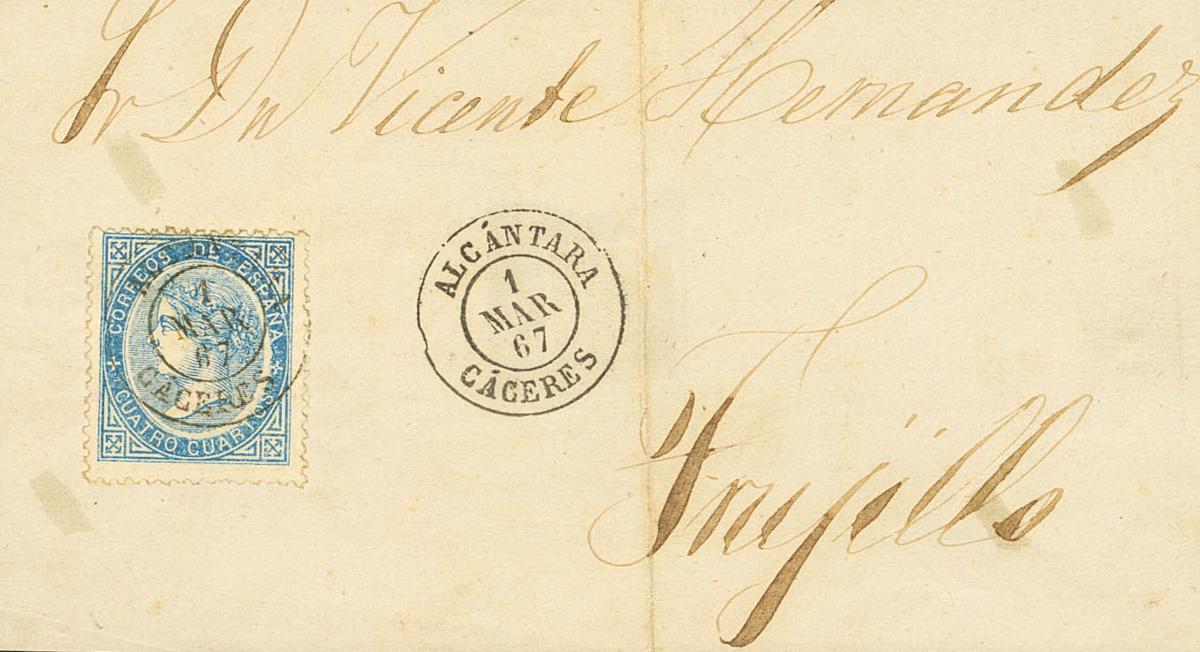 Sr Dn Vicente Hernandez
CORREOS DE ESPAÑA
1
MAR
67
CÁCERES
CUATRO CUARTOS
ALCÁNTARA
1
MAR
67
CÁCERES
Trujillo